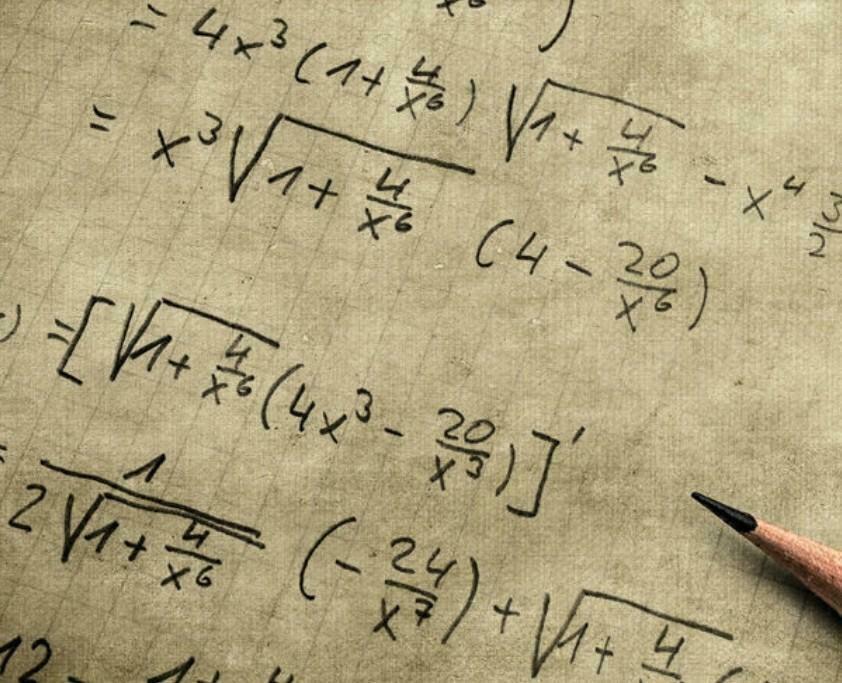 = 4x³ (1 + 4/x⁶) √(1 + 4/x⁶) - x⁴ 3/2
= x³ √(1 + 4/x⁶) (4 - 20/x⁶)
) = [√(1 + 4/x⁶) (4x³ - 20/x³)]′
= 1/(2√(1 + 4/x⁶)) (- 24/x⁷) + √(1 + 4/
12